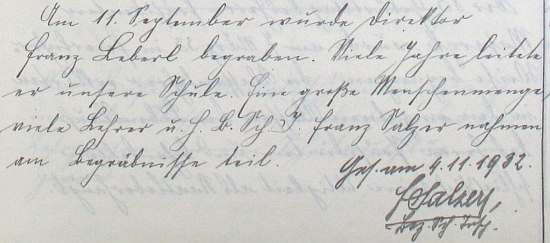 Am 11. September wurde Direktor
Franz Leberl begraben. Viele Jahre leitete
er unsere Schule. Eine große Menschenmenge,
viele Lehrer u. H. B. Sch. J. Franz Salzer nahmen
am Begräbnisse teil.
Ges. am 4. 11. 1932.
Salzer,
Bez. Sch. Insp.